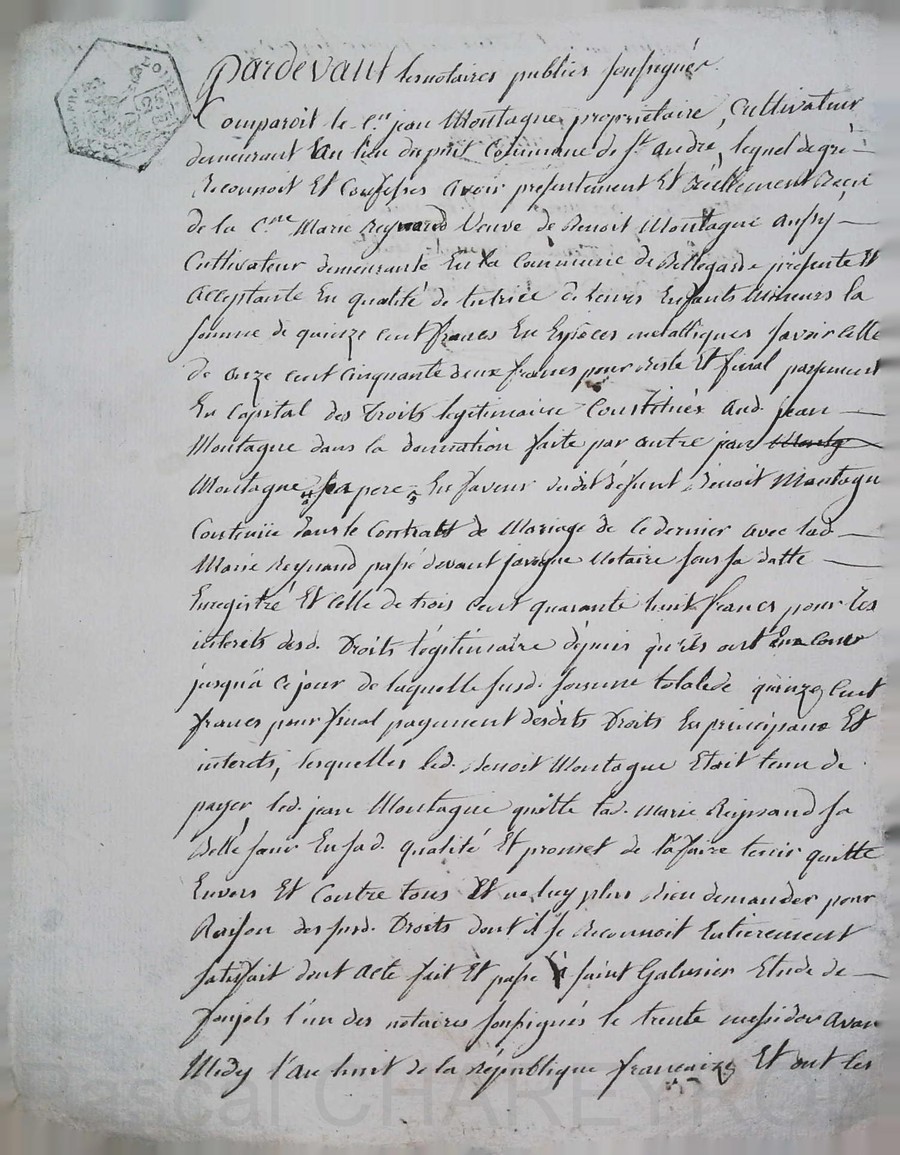 pardevant les notaires publics soussignés
Comparoit le C.en jean Montagne propriétaire, Cultivateur
demeurant au lieu du pin Commune de St. andré, lequel de gré
Reconnoit Et Confesse avoir présentement Et Réellement Reçu
de la C.ne Marie Reynaud Veuve de Benoit Montagne
Cultivateur demeurante En la Commune de Bellegarde présente Et
acceptante En qualité de tutrice de leurs Enfants Mineurs la
somme de quinze cent francs En Espèces métalliques savoir celle
de onze cent cinquante deux francs pour Reste Et final payement
En Capital des Droits légitimaire Constitués Aud. jean
Montagne dans la donnation faite par autre jean
Montagne, son pere En faveur dudit défunt Benoit Montagn
Contenüe dans le Contratt de Mariage de Ce dernier avec lad.
Marie Reynaud passé devant javogue Notaire sous sa datte
Enregistré Et Celle de trois Cent quarante huit francs pour les
interets desd. Droits légitimaire depuis qu'ils ont Eu Cours
jusqu'a Ce jour de laquelle susd. somme totale de quinze Cent
francs pour final payement desdits Droits En principaux Et
interets, lesquelles led. Benoit Montagne Etoit tenu de
payer, led. jean Montagne quitte lad. Marie Reynaud sa
Belle sœur En sad. qualité Et promet de la faire tenir quitte
Envers Et Contre tous Et ne luy plus Rien demander pour
Raison des susd. Droits dont il se Reconnoit Entierement
satisfait dont acte fait Et passé à saint Galmier Etude de
l'un des notaires soussignés le trente messidor avan
Midy l'an huit de la République francaize Et ont les